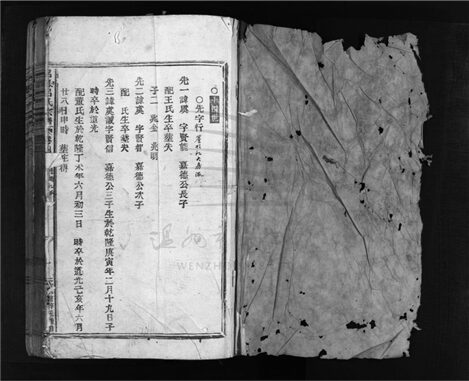 ○十四世
○先字行
先一諱虞 字賢龍 嘉德公長子
配王氏生卒墓失
子二 兆金 兆明
先二諱虞 字賢 嘉德公次子
配 氏生卒墓失
先三諱虞誠字賢 嘉德公三子生於乾隆庚寅年二月十九日子
時卒於道光
配董氏生於乾隆丁未年六月初三日 時卒於道光己亥年六月
廿八日申時 墓宅
WENZH